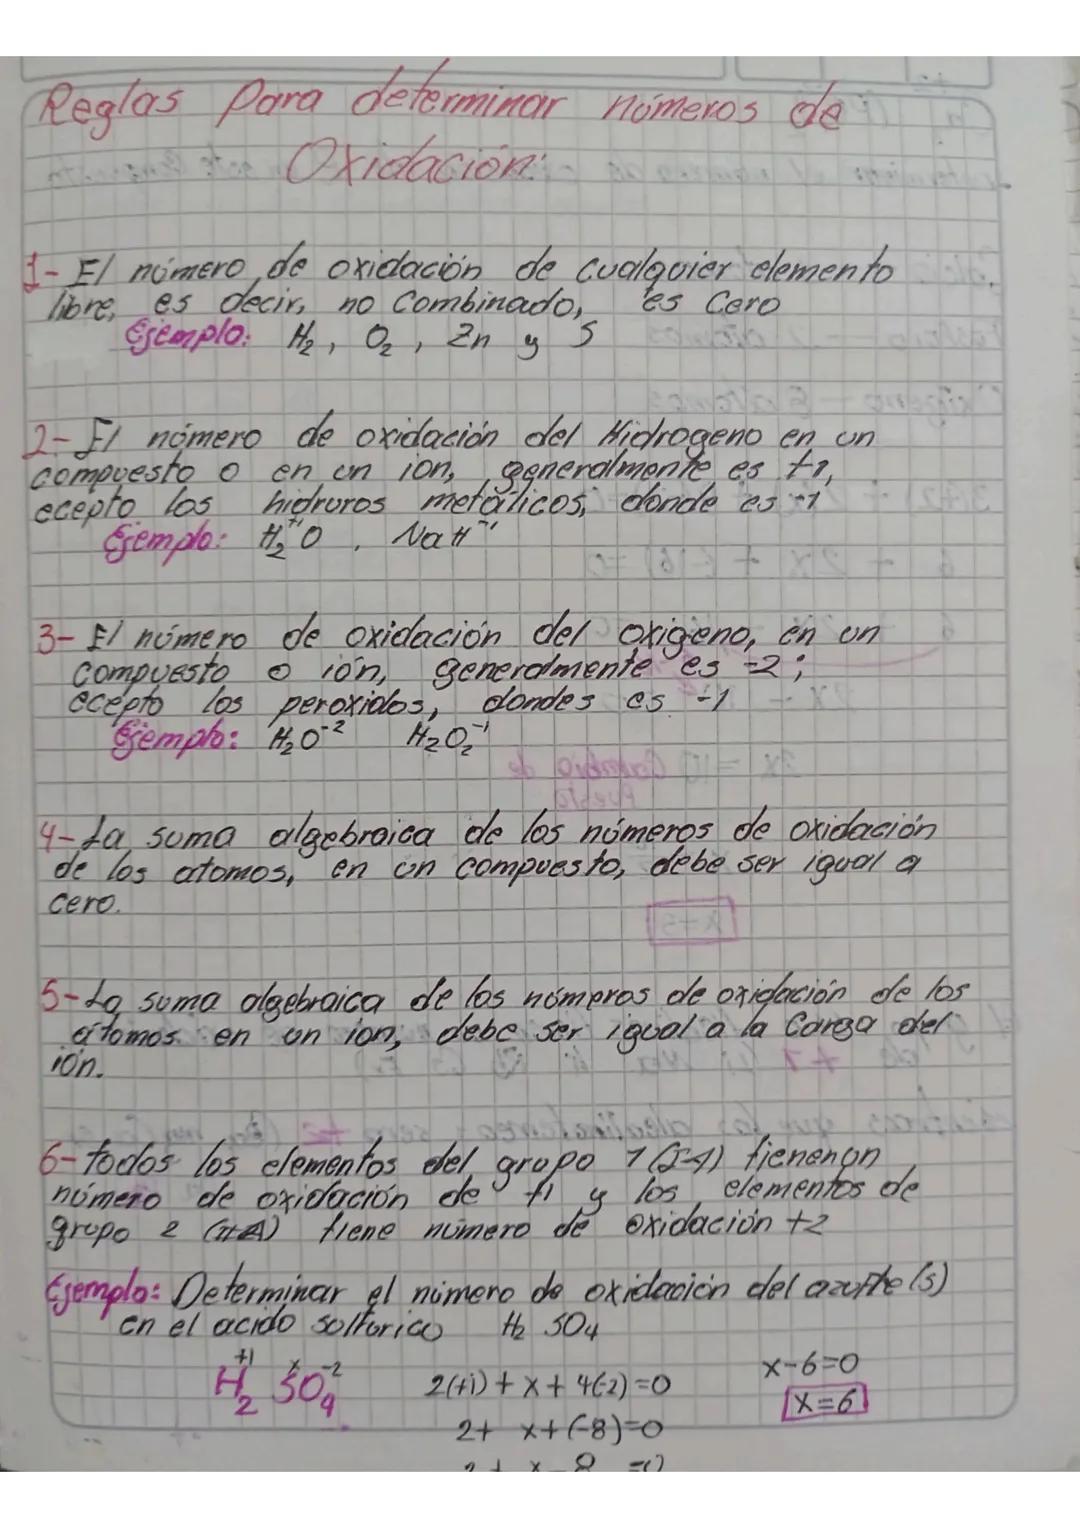 Reglas para determinar números de
Oxidación:
1- El número de oxidación de cualquier elemento
libre, es decir, no combinado, es Cero
Ejemplo: H2, O2, Zn y S
2- El número de oxidación del Hidrogeno en un
compuesto o en un ion, generalmente es +1,
ecepto los hidruros metálicos, donde es -1
Ejemplo: H2+1O, NaH-1
3- El número de oxidación del oxigeno, en un
compuesto o ión, generalmente es -2;
ecepto los peroxidos, dondes es -1
Ejemplo: H2O-2 H2O2-1
4- La suma algebraica de los números de oxidación
de los atomos, en un compuesto, debe ser igual a
cero.
5- La suma algebraica de los números de oxidación de los
átomos en un ion, debe ser igual a la Carga del
ión.
6- todos los elementos del grupo 1 (I-A) tienen un
número de oxidación de +1 y los elementos de
grupo 2 (II-A) tiene número de oxidación +2
Ejemplo: Determinar el número de oxidación del azufre (s)
en el acido solfurico H2 SO4
H2+1 SxO4-2 2(+1) + x + 4(-2) = 0 x-6=0
2+ x+(-8)=0 x=6
2+ x-8 =0